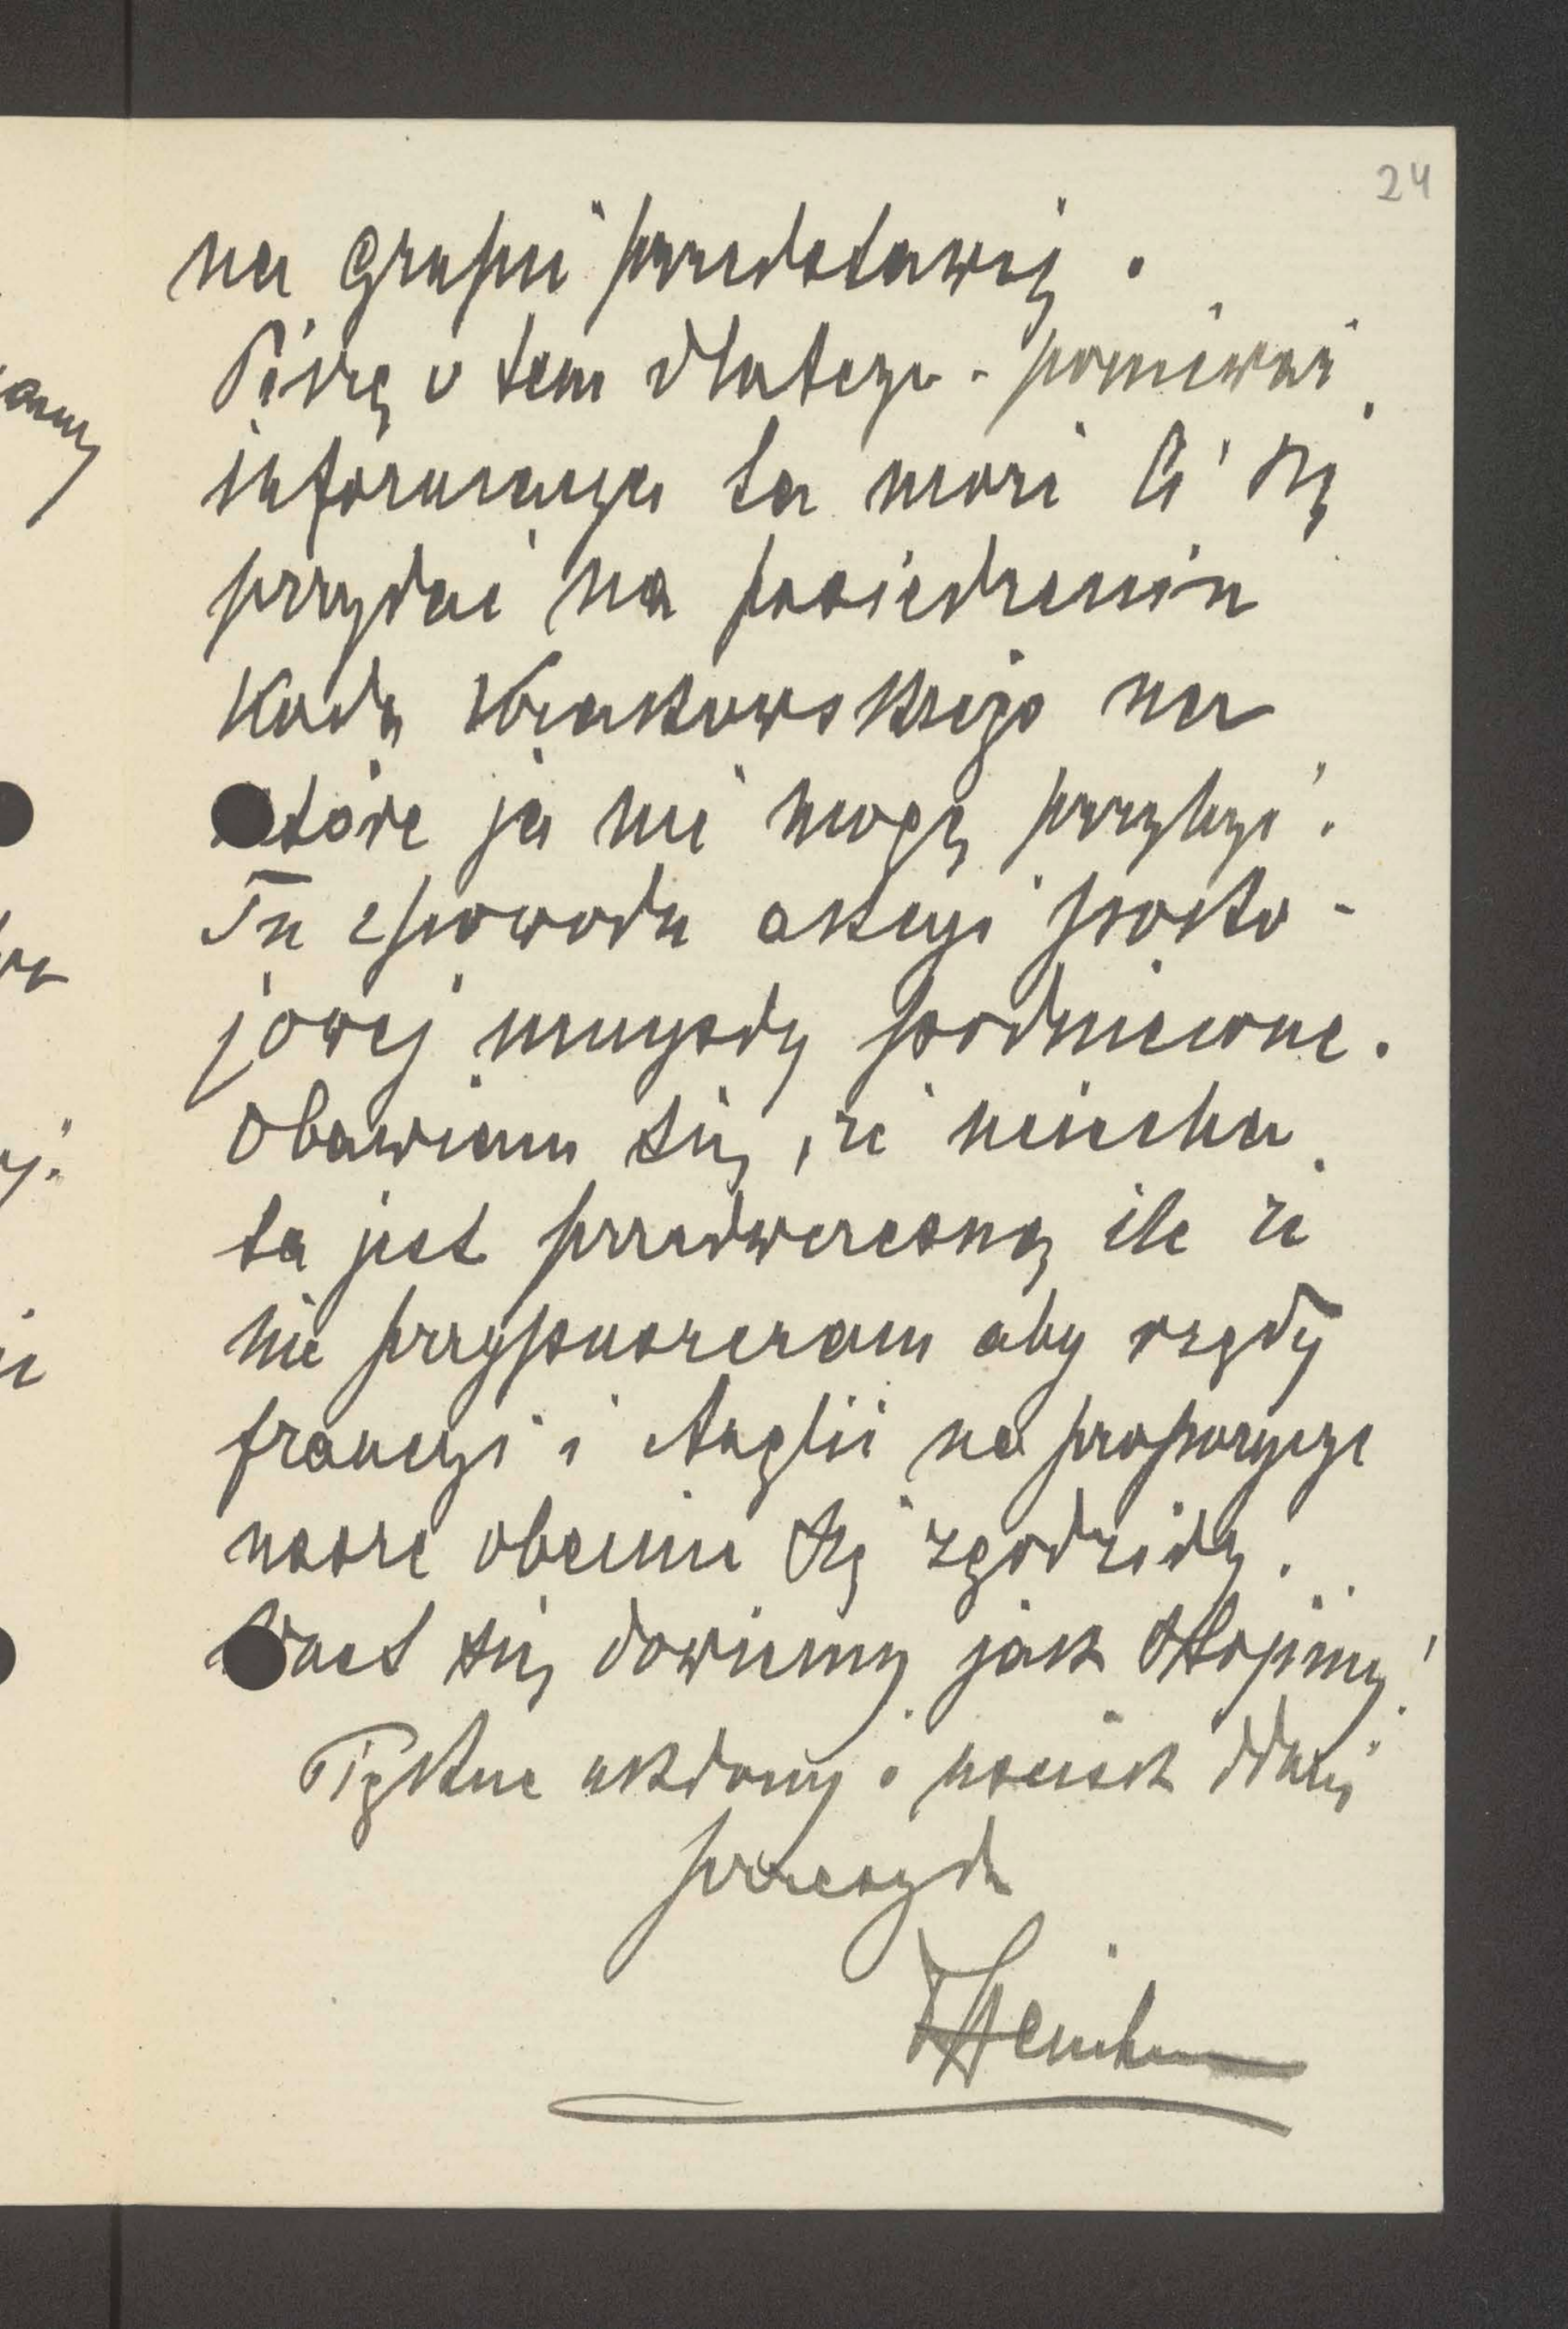 24
na Grupie przedstawię.
Piszę o tem dlatego - ponieważ
informacya ta może Ci się
przydać na posiedzeniu
Koła Krakowskiego na
które ja nie mogę przybyć.
Tu z powodu akcyi poko-
jowej umysły podniecone.
Obawiam się, że uciecha
ta jest przedwczesną ile że
nie przypuszczam aby rządy
francyi i Anglii na propozycye
nasze obecnie się zgodziły.
się dowiemy jak stoimy!
Piękne ukłony i uścisk dłoni
przesyła